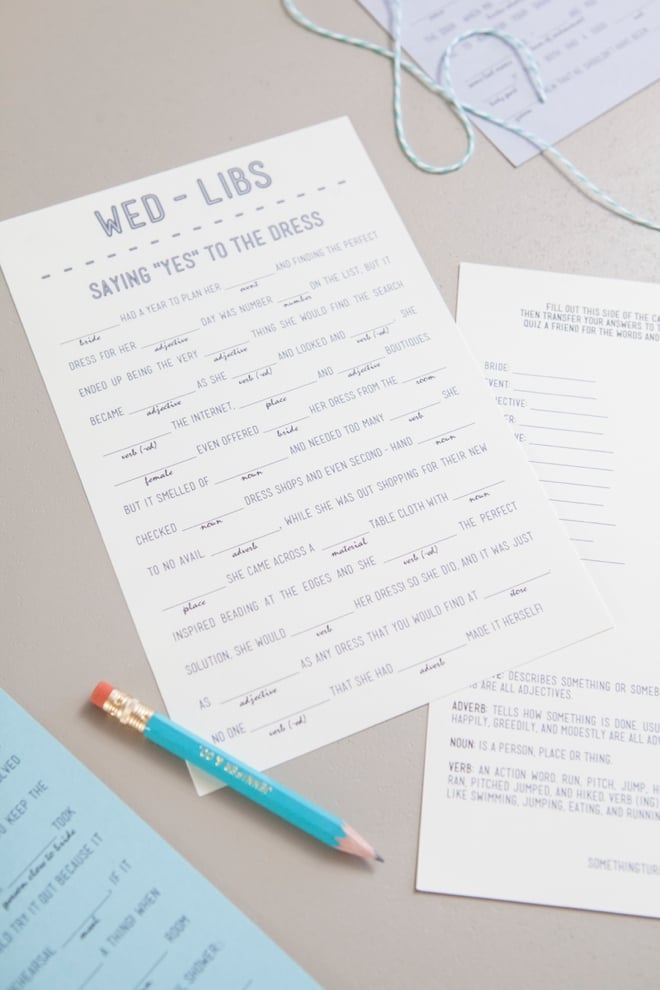 WED - LIBS
SAYING "YES" TO THE DRESS
HAD A YEAR TO PLAN HER AND FINDING THE PERFECT
bride event
DRESS FOR HER DAY WAS NUMBER ON THE LIST, BUT IT
adjective number
ENDED UP BEING THE VERY THING SHE WOULD FIND THE SEARCH
adjective
BECAME AS SHE AND LOOKED AND SHE
adjective verb (-ed) verb (-ed)
THE INTERNET, AND BOUTIQUES.
verb (-ed) place adjective
EVEN OFFERED HER DRESS FROM THE
female bride room
BUT IT SMELLED OF AND NEEDED TOO MANY SHE
noun verb
CHECKED DRESS SHOPS AND EVEN SECOND-HAND
noun noun
TO NO AVAIL. , WHILE SHE WAS OUT SHOPPING FOR THEIR NEW
adverb
SHE CAME ACROSS A TABLE CLOTH WITH
place material noun
INSPIRED BEADING AT THE EDGES AND SHE THE PERFECT
verb (-ed)
SOLUTION, SHE WOULD HER DRESS! SO SHE DID, AND IT WAS JUST
verb
AS AS ANY DRESS THAT YOU WOULD FIND AT
adjective store
NO ONE THAT SHE HAD MADE IT HERSELF!
verb (-ed) adverb
FILL OUT THIS SIDE OF THE
THEN TRANSFER YOUR ANSWERS TO
QUIZ A FRIEND FOR THE WORDS AND
BRIDE:
DESCRIBES SOMETHING OR
ARE ALL ADJECTIVES.
ADVERB: TELLS HOW SOMETHING IS DONE.
HAPPILY, GREEDILY, AND MODESTLY ARE ALL
NOUN: IS A PERSON, PLACE OR THING.
VERB: AN ACTION WORD. RUN, PITCH, JUMP,
RAN, PITCHED JUMPED, AND HIKED. VERB (ING)
LIKE SWIMMING, JUMPING, EATING, AND
JENNIFER & CO.
KEEP THE
TOOK
person close to bride
TRY IT OUT BECAUSE IT
IF IT
A THING! WHEN
ROOM
SHOWER: